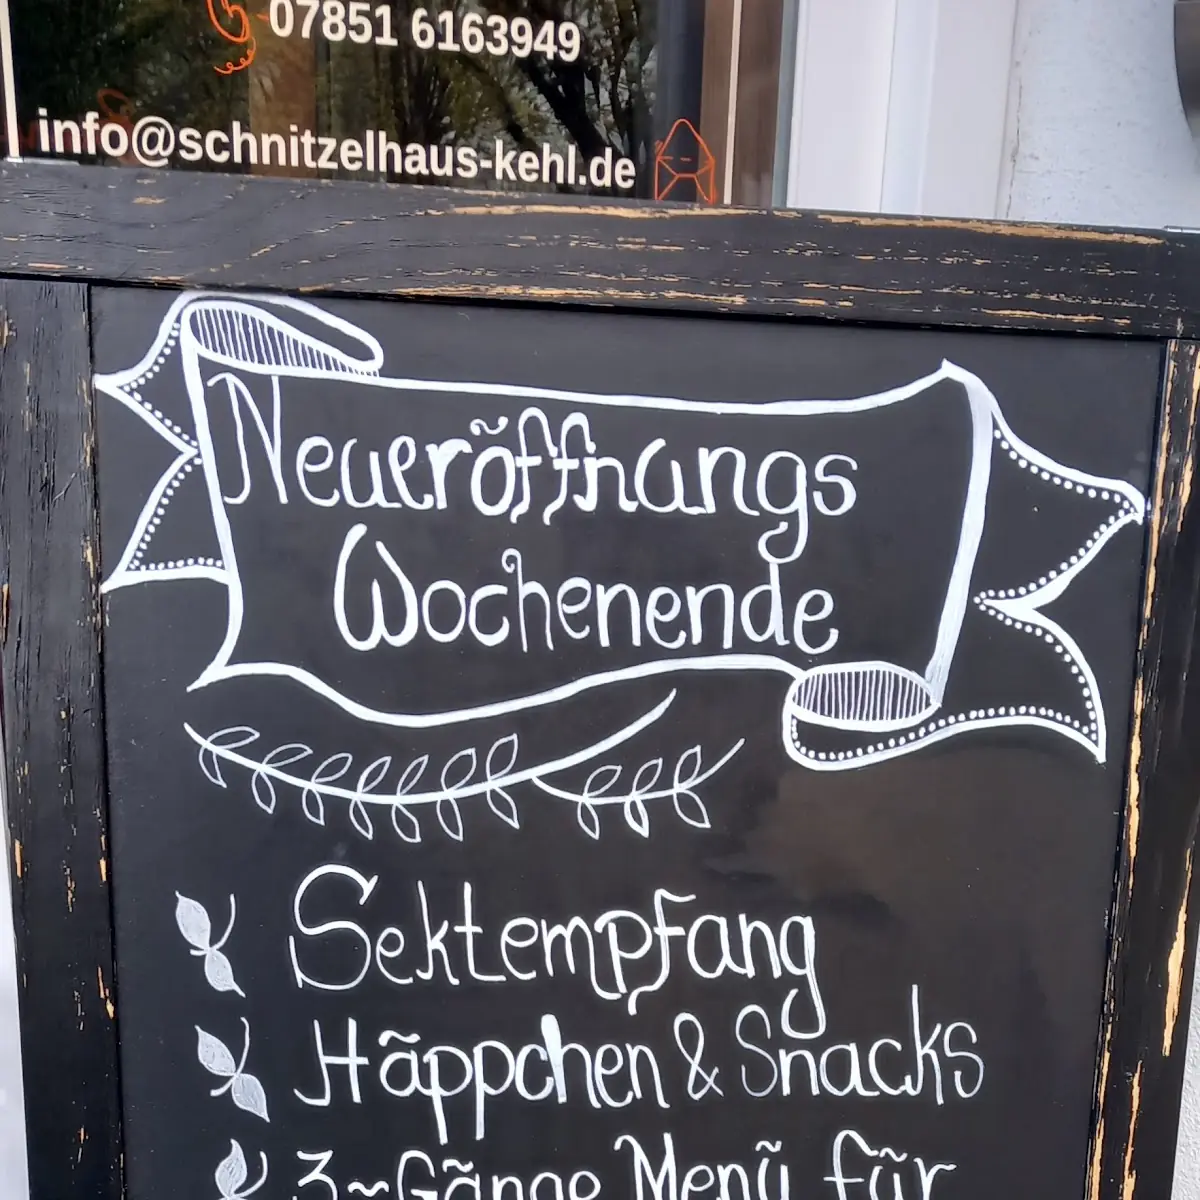 07851 6163949
info@schnitzelhaus-kehl.de
Neueröffnungs
Wochenende
Sektempfang
Häppchen & Snacks
3-Gänge Menü für